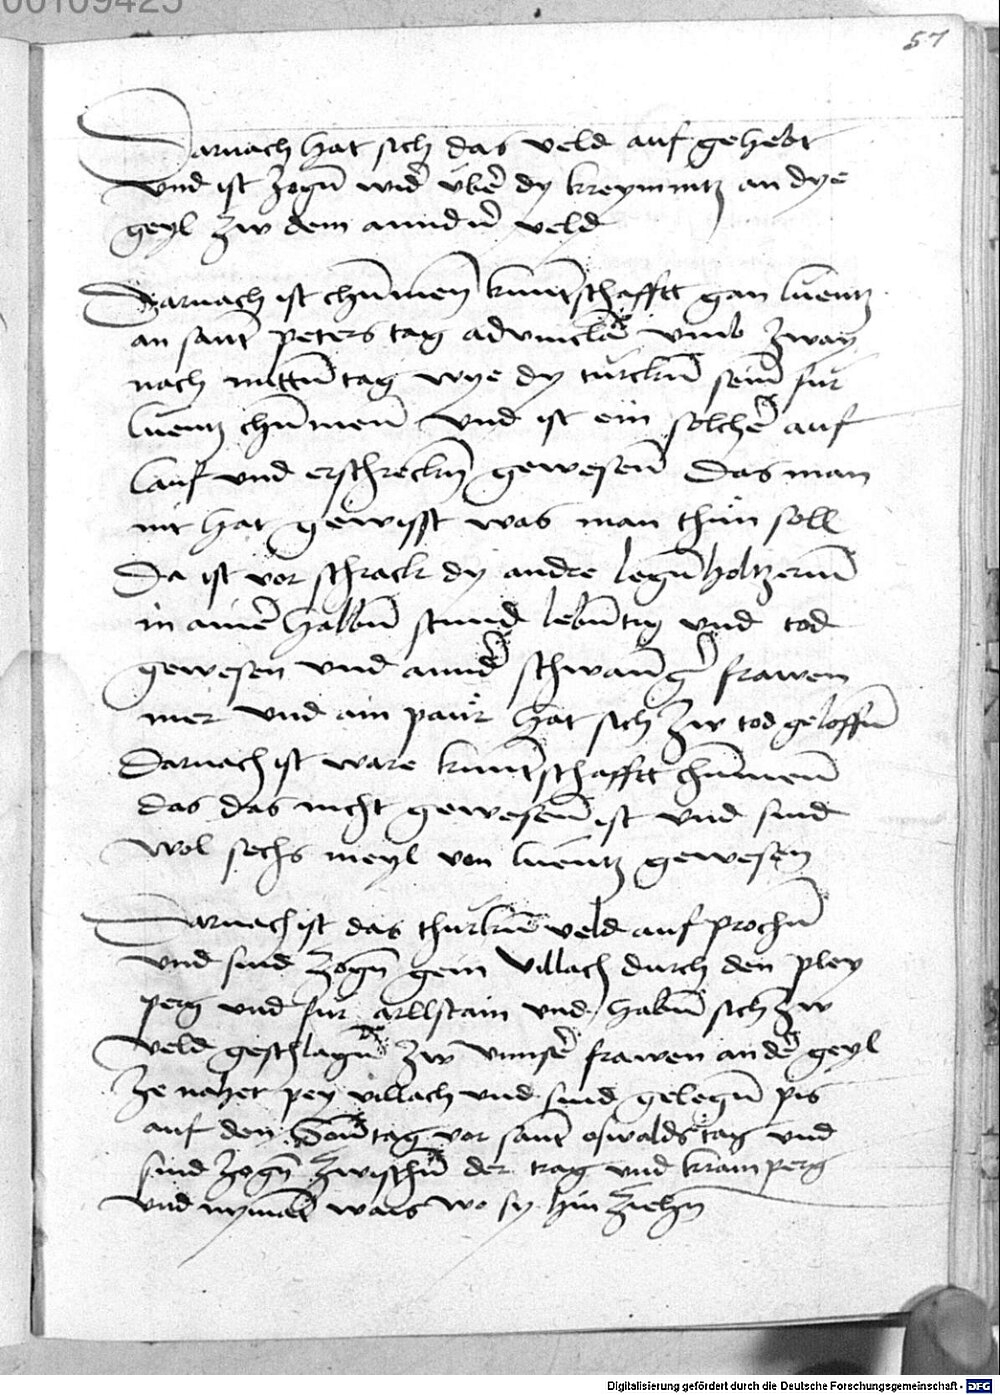 00109425
57
Darnach hat sich das veld auf gehebt
vnd ist zogn wider vber dy kreyinnitz an dye
geyl zw dem anndern veld
Darnach ist chumen kuntschafftt gan luentz
an sant peters tag advincula vmb zway
nach mittn tag wye dy turckn sein fur
luentz chumen vnd ist ein solcher auf
lauf vnd erschreckn gewesen Das man
nit hat gewisst was man thun soll
Da ist vor schrack dy andre
in ainer halbn stund lebntig vnd tod
gewesen vnd annder schwanger frawen
mer vnd ain paur hat sich zw tod geloffn
Darnach ist ware kuntschafftt chumen
das das nicht gewesen ist vnd sind
wol sechs meyl von luentz gewesen
Darnach ist das thurkn veld auf prochn
vnd sind zogn gein villach durch den pley
perg vnd fur arllstain vnd habn sich zw
veld geschlagn zw vnnser frawen an der geyl
ze nahet pey villach vnd sind gelegn pis
auf den Sontag vor sant oswalds tag vnd
sind zogn zwischn der trag vnd krain perg
vnd nymant wais wo sy hin ziehn
Digitalisierung gefördert durch die Deutsche Forschungsgemeinschaft - DFG